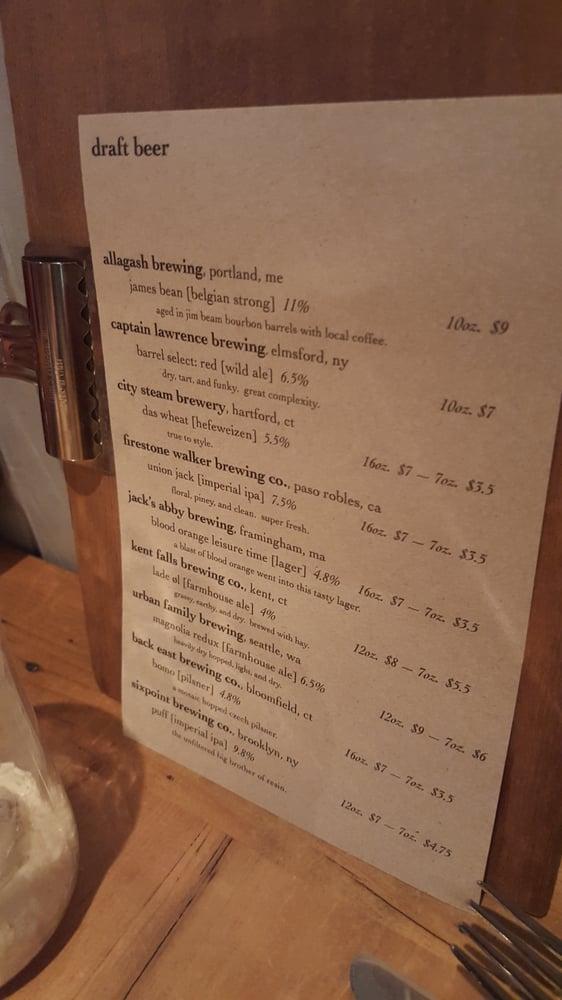 draft beer
allagash brewing, portland, me
james bean [belgian strong] 11% 10oz. $9
aged in jim beam bourbon barrels with local coffee.
captain lawrence brewing, elmsford, ny
barrel select: red [wild ale] 6.5% 10oz. $7
dry, tart, and funky. great complexity.
city steam brewery, hartford, ct
das wheat [hefeweizen] 5.5% 16oz. $7 — 7oz. $3.5
true to style.
firestone walker brewing co., paso robles, ca
union jack [imperial ipa] 7.5% 16oz. $7 — 7oz. $3.5
floral, piney, and clean. super fresh.
jack's abby brewing, framingham, ma
blood orange leisure time [lager] 4.8% 16oz. $7 — 7oz. $3.5
a blast of blood orange went into this tasty lager.
kent falls brewing co., kent, ct
lade øl [farmhouse ale] 4% 12oz. $8 — 7oz. $5.5
grassy, earthy, and dry. brewed with hay.
urban family brewing, seattle, wa
magnolia redux [farmhouse ale] 6.5% 12oz. $9 — 7oz. $6
heavily dry hopped, light, and dry.
back east brewing co., bloomfield, ct
bomo [pilsner] 4.8% 16oz. $7 — 7oz. $3.5
a mosaic hopped czech pilsner.
sixpoint brewing co., brooklyn, ny
puff [imperial ipa] 9.8% 12oz. $7 — 7oz. $4.75
the unfiltered big brother of resin.